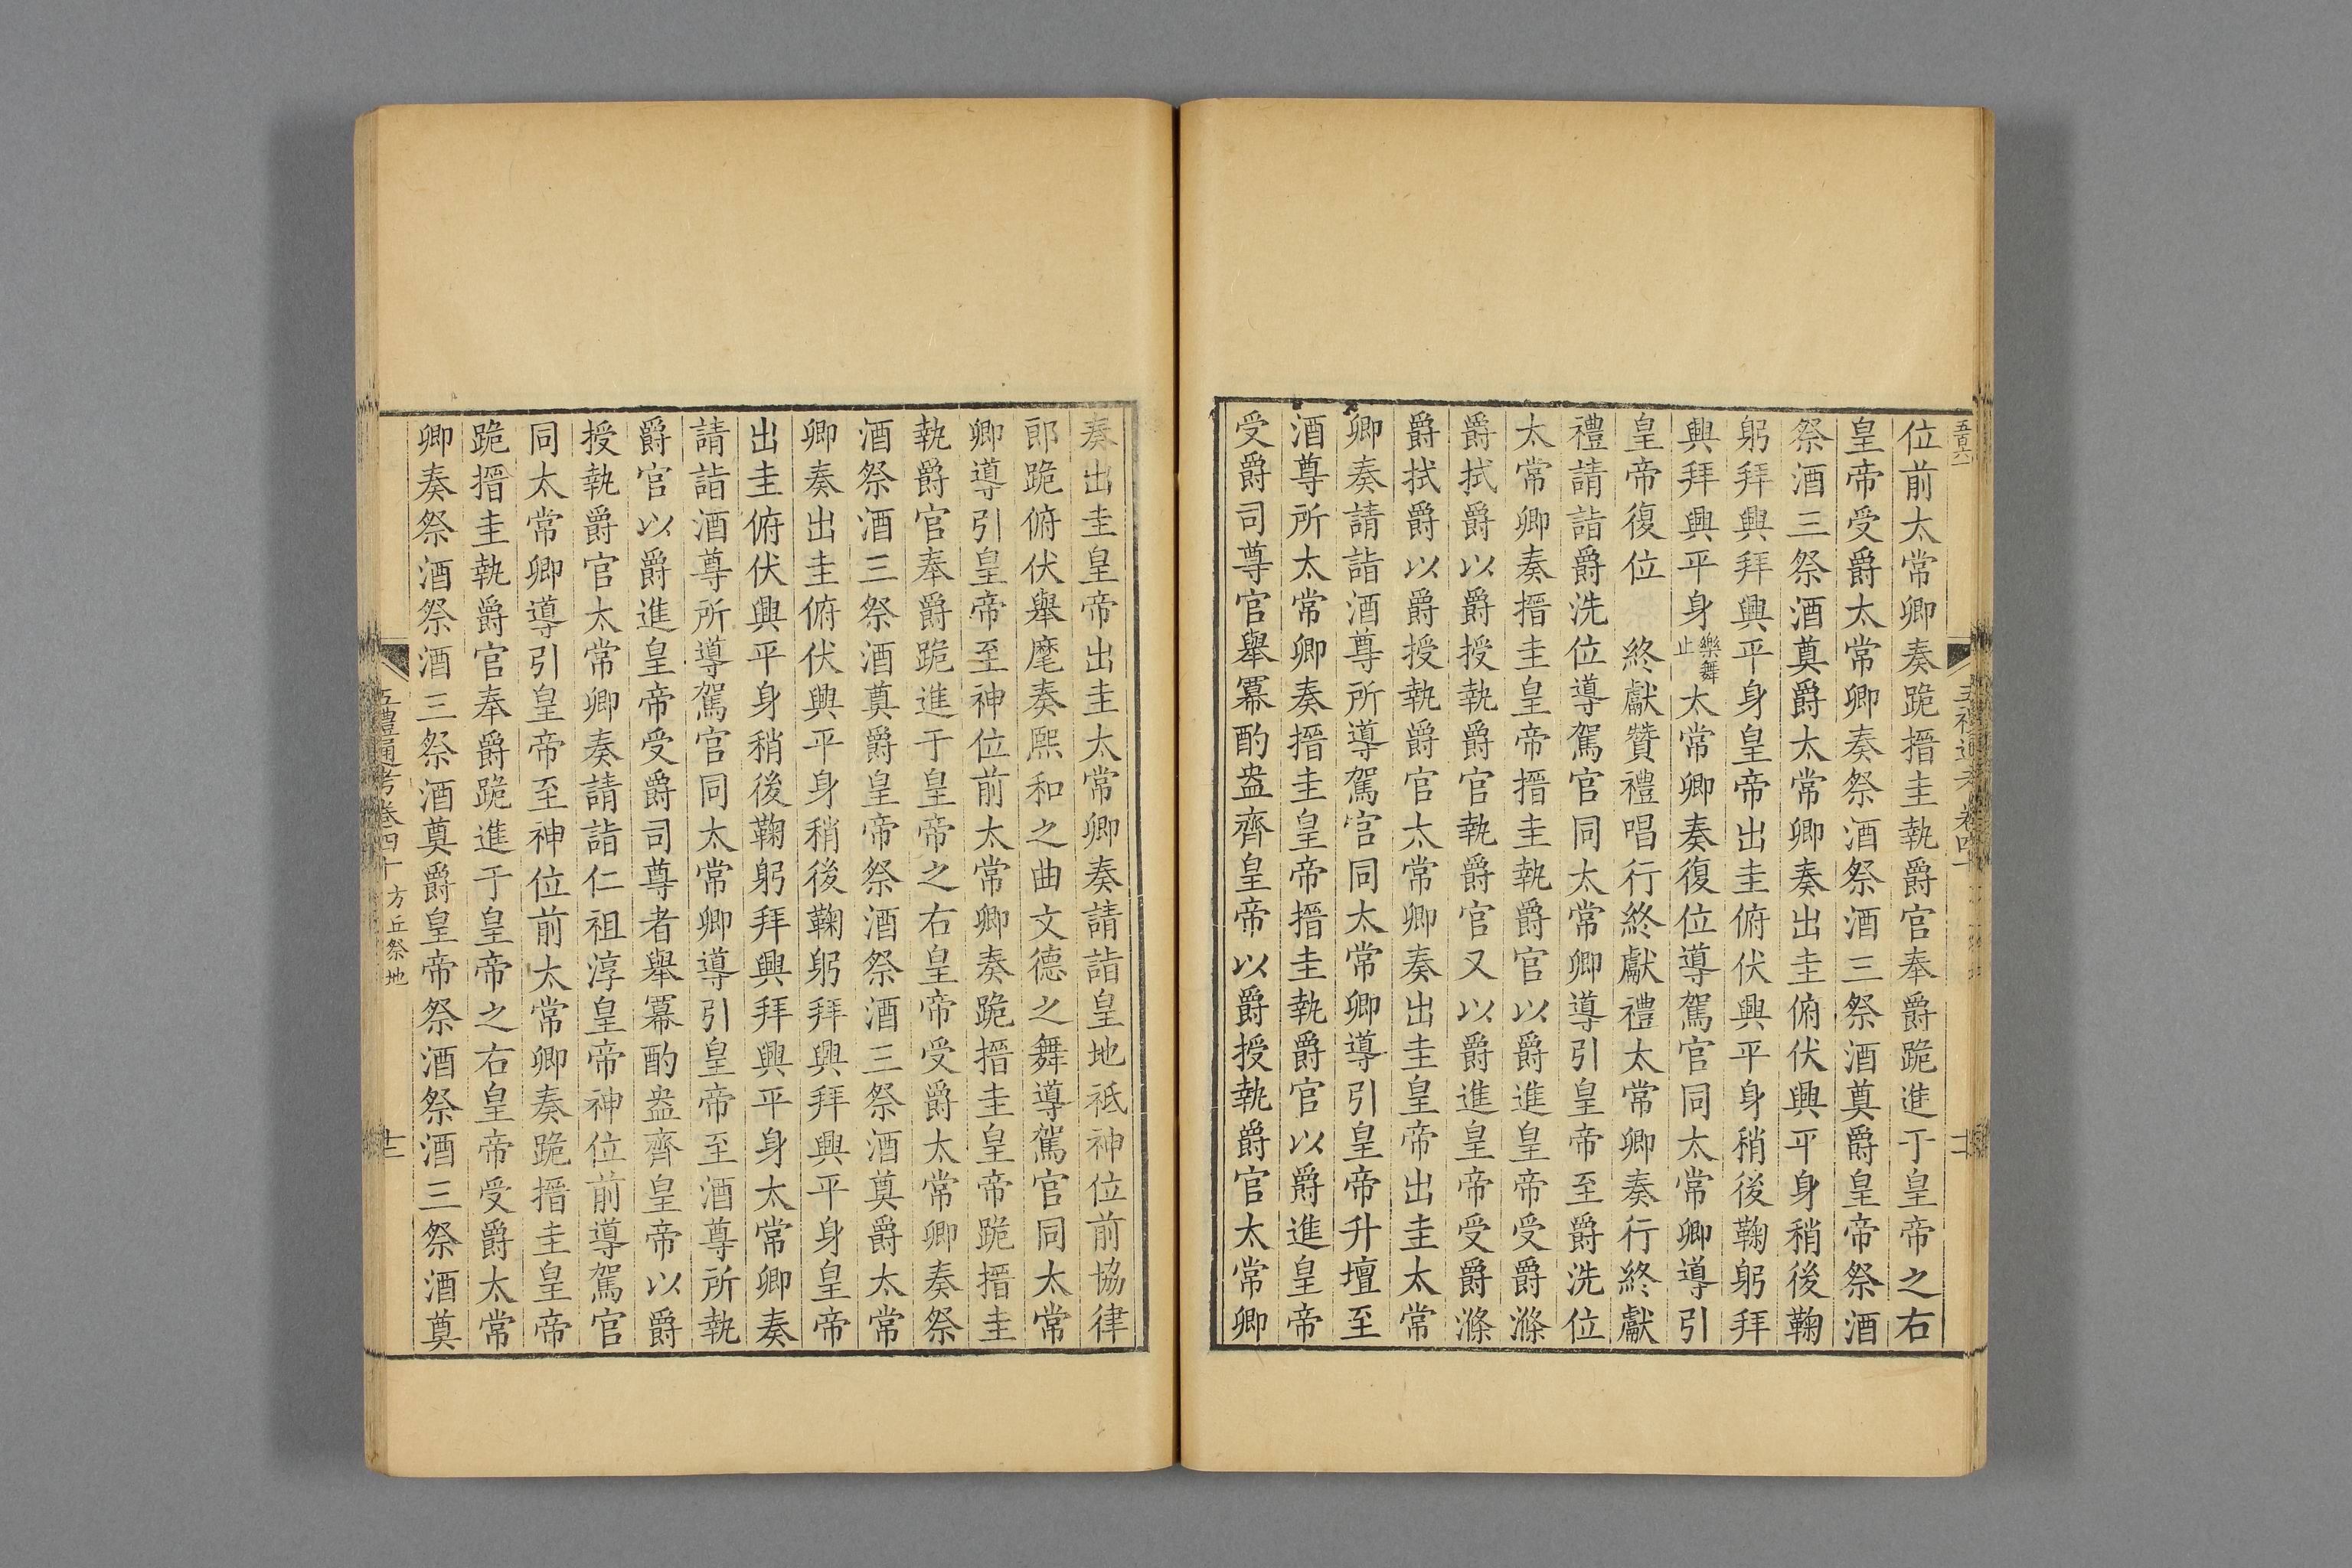 五百六
位前太常卿奏跪搢圭執爵官奉爵跪進于皇帝之右
皇帝受爵太常卿奏祭酒祭酒三祭酒奠爵皇帝祭酒
祭酒三祭酒奠爵太常卿奏出圭俯伏興平身稍後鞠
躬拜興拜興平身皇帝出圭俯伏興平身稍後鞠躬拜
興拜興平身樂舞止太常卿奏復位導駕官同太常卿導引
皇帝復位 終獻贊禮唱行終獻禮太常卿奏行終獻
禮請詣爵洗位導駕官同太常卿導引皇帝至爵洗位
太常卿奏搢圭皇帝搢圭執爵官以爵進皇帝受爵滌
爵拭爵以爵授執爵官執爵官又以爵進皇帝受爵滌
爵拭爵以爵授執爵官太常卿奏出圭皇帝出圭太常
卿奏請詣酒尊所導駕官同太常卿導引皇帝升壇至
酒尊所太常卿奏搢圭皇帝搢圭執爵官以爵進皇帝
受爵司尊官舉冪酌盎齊皇帝以爵授執爵官太常卿
奏出圭皇帝出圭太常卿奏請詣皇地祗神位前協律
郎跪俯伏舉麾奏熙和之曲文德之舞導駕官同太常
卿導引皇帝至神位前太常卿奏跪搢圭皇帝跪搢圭
執爵官奉爵跪進于皇帝之右皇帝受爵太常卿奏祭
酒祭酒三祭酒奠爵皇帝祭酒祭酒三祭酒奠爵太常
卿奏出圭俯伏興平身稍後鞠躬拜興拜興平身皇帝
出圭俯伏興平身稍後鞠躬拜興拜興平身太常卿奏
請詣酒尊所導駕官同太常卿導引皇帝至酒尊所執
爵官以爵進皇帝受爵司尊者舉冪酌盎齊皇帝以爵
授執爵官太常卿奏請詣仁祖淳皇帝神位前導駕官
同太常卿導引皇帝至神位前太常卿奏跪搢圭皇帝
跪搢圭執爵官奉爵跪進于皇帝之右皇帝受爵太常
卿奏祭酒祭酒三祭酒奠爵皇帝祭酒祭酒三祭酒奠
五禮通考卷四十 方丘祭地